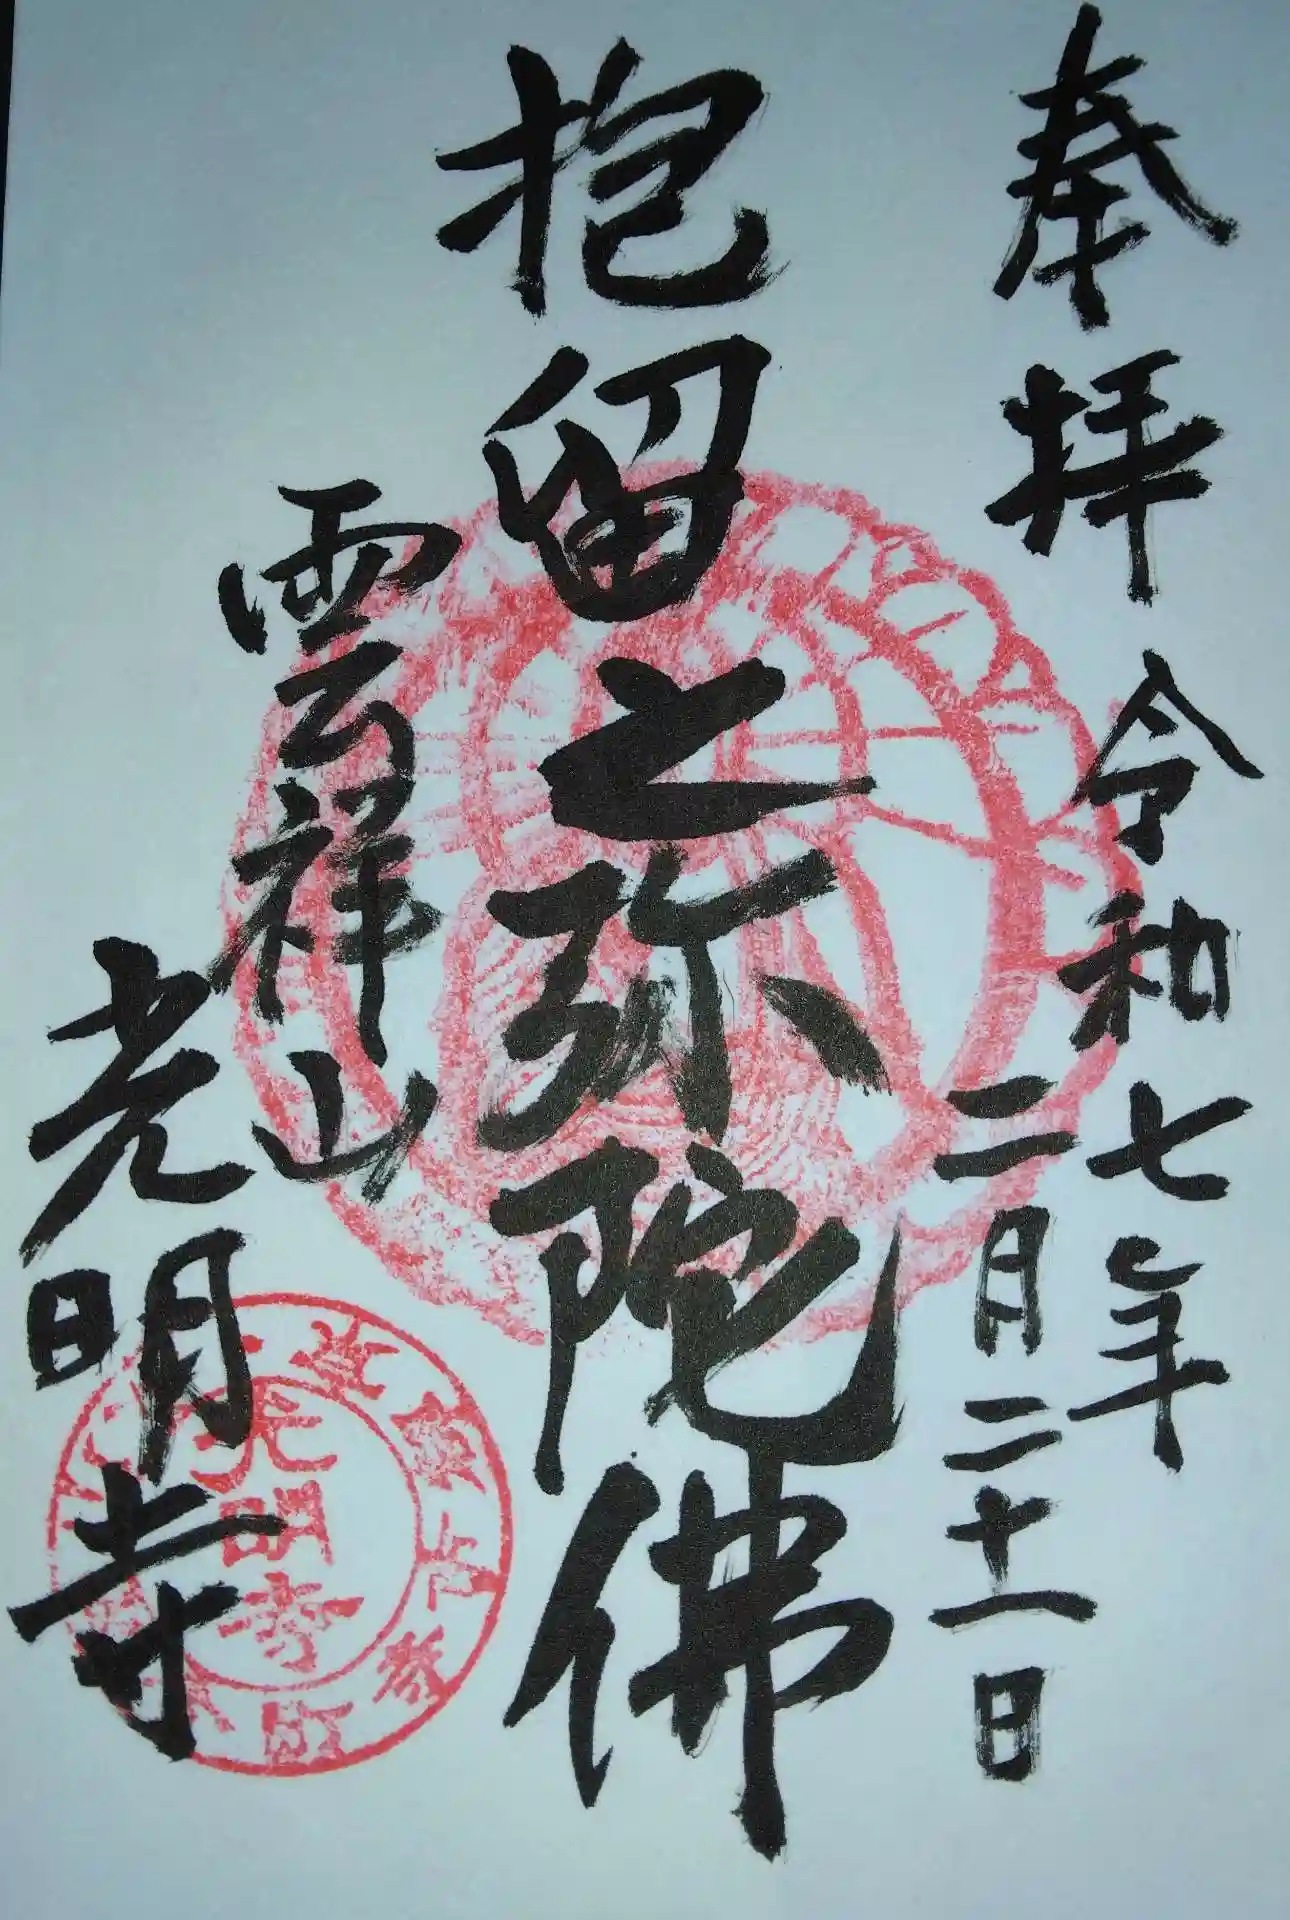 奉拝
令和七年
二月二十一日
抱留之弥陀佛
雲祥山
光明寺
光明寺